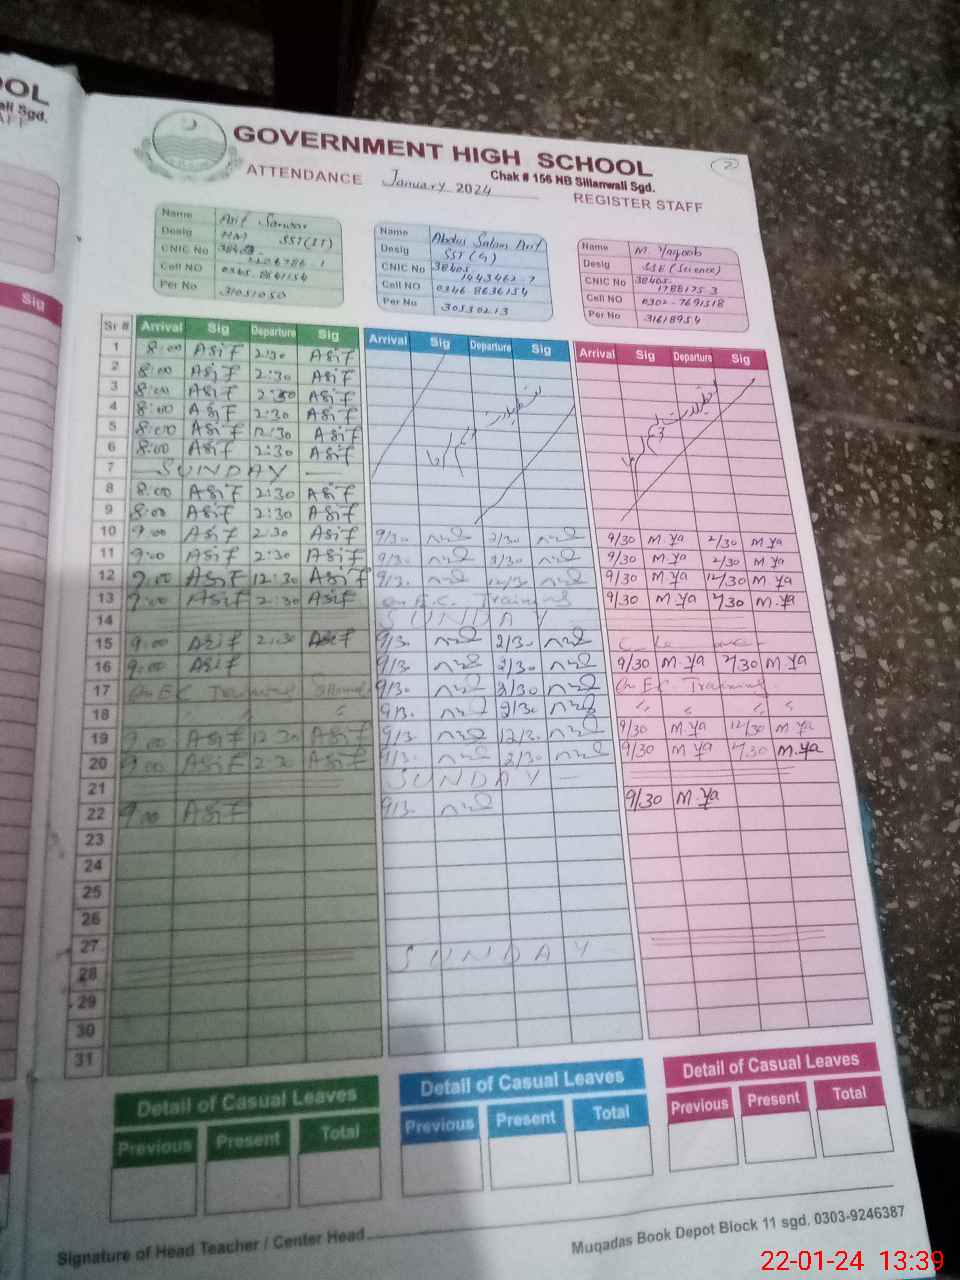 OOL
ali Sgd.
AFF
Sig
GOVERNMENT HIGH SCHOOL
2
Chak # 156 NB Sillanwali Sgd.
ATTENDANCE January 2024
REGISTER STAFF
Name Asif Sarwar
Desig HM SST(IT)
CNIC No
Cell NO 0345-8641154
Per No 31051050
Name Abdus Salam Arif
Desig SST(G)
CNIC No 38405 1443462-7
Cell NO 0346-8636154
Per No 30530213
Name M. Yaqoob
Desig SSE (Science)
CNIC No 38405- 1788175-3
Cell NO 0302-7691518
Per No 31618954
Sr # Arrival Sig Departure Sig Arrival Sig Departure Sig Arrival Sig Departure Sig
1 8:00 Asif 2:30 Asif
2 8:00 Asif 2:30 Asif
3 8:00 Asif 2:30 Asif
4 8:00 Asif 2:30 Asif
5 8:00 Asif 12:30 Asif
6 8:00 Asif 2:30 Asif
7 SUNDAY
8 8:00 Asif 2:30 Asif
9 8:00 Asif 2:30 Asif
10 9:00 Asif 2:30 Asif 9/30 2/30 9/30 M.Ya 2/30 M.Ya
11 9:00 Asif 2:30 Asif 9/30 2/30 9/30 M.Ya 2/30 M.Ya
12 9:00 Asif 12:30 Asif 9/3. 12/3. 9/30 M.Ya 12/30 M.Ya
13 9:00 Asif 2:30 Asif on E.C. Training 9/30 M.Ya 2/30 M.Ya
14 SUNDAY
15 9:00 Asif 2:30 Asif 9/3. 2/30 C. Leave
16 9:00 Asif 9/3. 2/30 9/30 M.Ya 2/30 M.Ya
17 On EC Training 9/30 2/30 On EC. Training
18 " " 9/3. 2/30 " " "
19 9:00 Asif 12:30 Asif 9/3. 12/3. 9/30 M.Ya 12/30 M.Ya
20 9:00 Asif Asif 9/3. 2/30 9/30 M.Ya 2/30 M.Ya
21 SUNDAY
22 9:00 Asif 9/3. 9/30 M.Ya
23
24
25
26
27
28 SUNDAY
29
30
31
Detail of Casual Leaves Detail of Casual Leaves Detail of Casual Leaves
Previous Present Total Previous Present Total Previous Present Total
Signature of Head Teacher / Center Head
Muqadas Book Depot Block 11 sgd. 0303-9246387
22-01-24 13:39